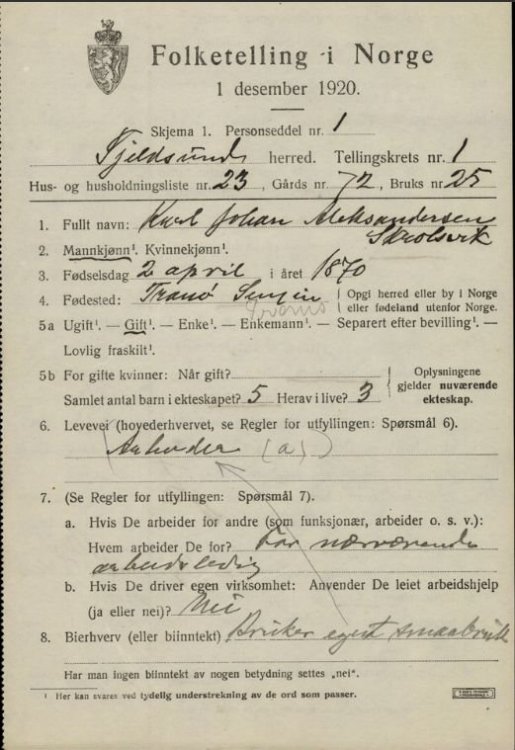 Folketelling i Norge
1 desember 1920.
Skjema 1. Personseddel nr. 1
Fjeldsund herred. Tellingskrets nr. 1
Hus- og husholdningsliste nr. 23, Gårds nr. 72, Bruks nr. 25
1. Fullt navn: Karl Johan Aleksandersen
Skrolsvik
2. Mannkjønn¹. Kvinnekjønn¹.
3. Fødselsdag 2 april i året 1870
4. Fødested: Tranø Senjen Opgi herred eller by i Norge
Tranø eller fødeland utenfor Norge.
5a Ugift¹. — Gift¹. — Enke¹. — Enkemann¹. — Separert efter bevilling¹. —
Lovlig fraskilt¹.
5b For gifte kvinner: Når gift? Oplysningene
Samlet antal barn i ekteskapet? 5 Herav i live? 3 gjelder nuværende
ekteskap.
6. Levevei (hovederhvervet, se Regler for utfyllingen: Spørsmål 6).
Arbeider (a)
7. (Se Regler for utfyllingen: Spørsmål 7).
a. Hvis De arbeider for andre (som funksjonær, arbeider o. s. v.):
Hvem arbeider De for? For nærværende
arbeidsledig
b. Hvis De driver egen virksomhet: Anvender De leiet arbeidshjelp
(ja eller nei)? Nei
8. Bierhverv (eller biinntekt) Bruker eget smaabruk
Har man ingen biinntekt av nogen betydning settes „nei".
¹ Her kan svares ved tydelig understrekning av de ord som passer.